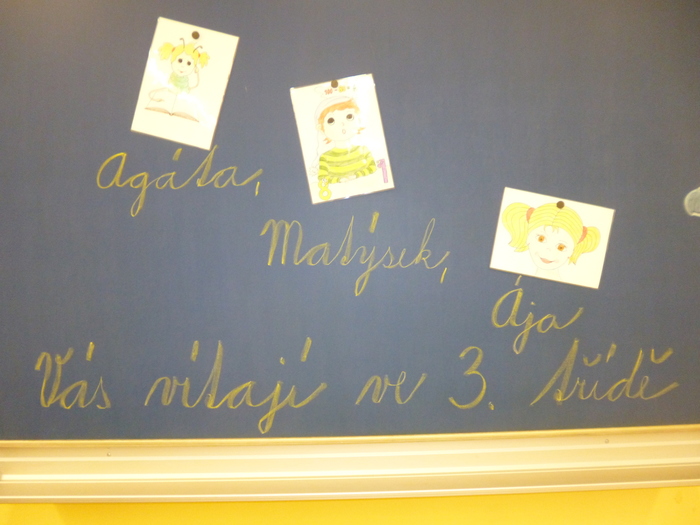 Agáta,
Matýsek,
Ája
Vás vítají ve 3. třídě